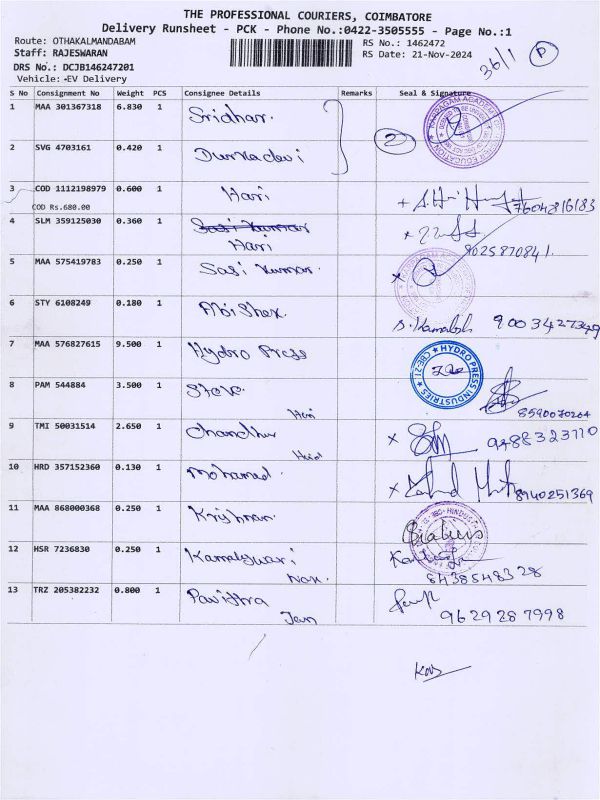 THE PROFESSIONAL COURIERS, COIMBATORE
Delivery Runsheet - PCK - Phone No.:0422-3505555 - Page No.:1
Route: OTHAKALMANDABAM
RS No.: 1462472
Staff: RAJESWARAN
RS Date: 21-Nov-2024
36/1 P
DRS No.: DCJB146247201
Vehicle: EV Delivery
S No Consignment No Weight PCS Consignee Details Remarks Seal & Signature
1 MAA 301367318 6.830 1 Sridhar.
2 SVG 4703161 0.420 1 Durgadevi 2
3 COD 1112198979 0.600 1 Hari 7604816183
COD Rs.680.00
4 SLM 359125030 0.360 1 Sasi Kumar
Hari 8025870841.
5 MAA 575419783 0.250 1 Sasi Kumar.
6 STY 6108249 0.180 1 Abishek. S. Kamalesh 9003427349
7 MAA 576827615 9.500 1 Hydro Press HYDRO PRESS INDUSTRIES
8 PAM 544884 3.500 1
Hari 8590070264
9 TMI 50031514 2.650 1 Chandhru 9788323110
10 HRD 357152360 0.130 1 Mohamed. 8940251369
11 MAA 868000368 0.250 1 Krishnan.
12 HSR 7236830 0.250 1 Kamaleswari
8438548328
13 TRZ 205382232 0.800 1 Pavithra
9629287998